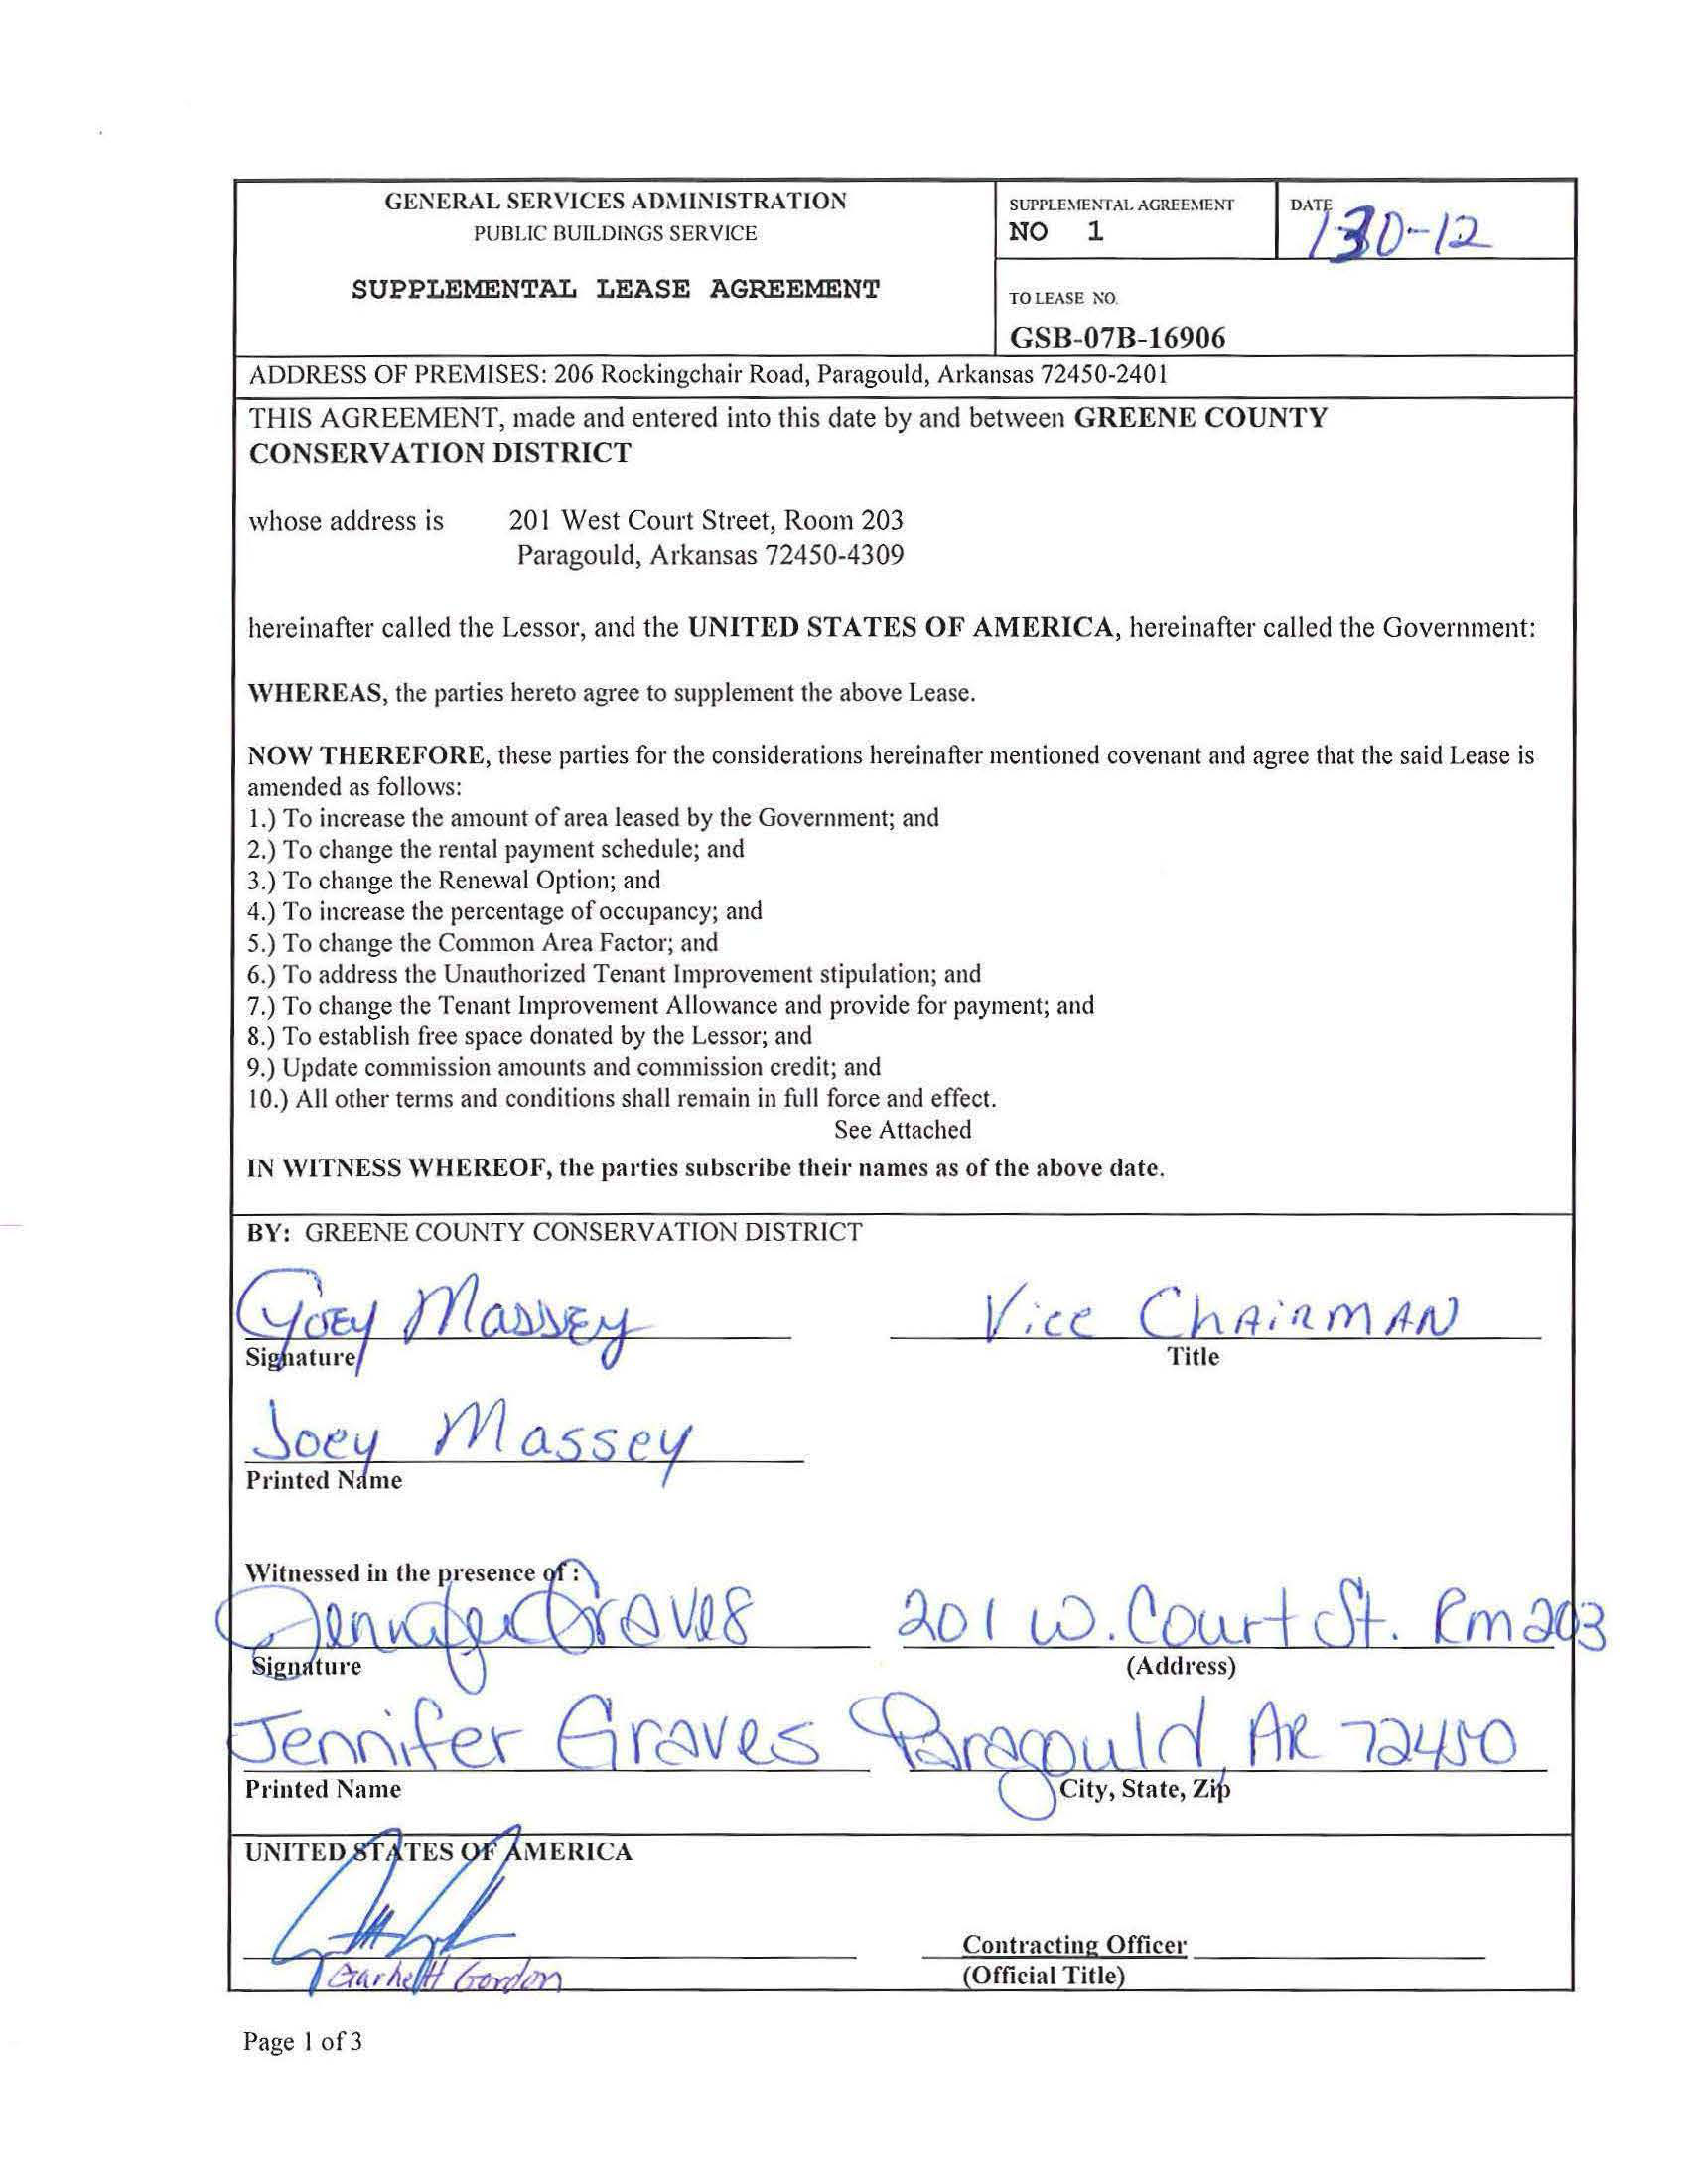 GENERAL SERVICES ADMINISTRATION
PUBLIC BUILDINGS SERVICE
SUPPLEMENTAL LEASE AGREEMENT
SUPPLEMENTAL AGREEMENT
NO 1
DATE
130-12
TO LEASE NO.
GSB-07B-16906
ADDRESS OF PREMISES: 206 Rockingchair Road, Paragould, Arkansas 72450-2401
THIS AGREEMENT, made and entered into this date by and between GREENE COUNTY
CONSERVATION DISTRICT
whose address is 201 West Court Street, Room 203
Paragould, Arkansas 72450-4309
hereinafter called the Lessor, and the UNITED STATES OF AMERICA, hereinafter called the Government:
WHEREAS, the parties hereto agree to supplement the above Lease.
NOW THEREFORE, these parties for the considerations hereinafter mentioned covenant and agree that the said Lease is
amended as follows:
1.) To increase the amount of area leased by the Government; and
2.) To change the rental payment schedule; and
3.) To change the Renewal Option; and
4.) To increase the percentage of occupancy; and
5.) To change the Common Area Factor; and
6.) To address the Unauthorized Tenant Improvement stipulation; and
7.) To change the Tenant Improvement Allowance and provide for payment; and
8.) To establish free space donated by the Lessor; and
9.) Update commission amounts and commission credit; and
10.) All other terms and conditions shall remain in full force and effect.
See Attached
IN WITNESS WHEREOF, the parties subscribe their names as of the above date.
BY: GREENE COUNTY CONSERVATION DISTRICT
Joey Massey Vice Chairman
Signature Title
Joey Massey
Printed Name
Witnessed in the presence of :
Jennifer Graves 201 W. Court St. Rm 203
Signature (Address)
Jennifer Graves Paragould, AR 72450
Printed Name City, State, Zip
UNITED STATES OF AMERICA
Contracting Officer
Gordon (Official Title)
Page 1 of 3